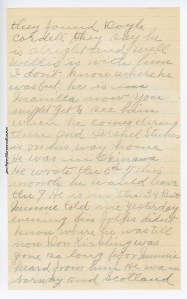 they found Doyle
Cordell they say he
is alright and well
Willis is with him
I dont know where he
was but he is in
Manilla now you
might get to see him
when he comes
there and Hershel Stiles
is on his way home
He was in Okinawa
He wrote the 5th of this
month he would leave
the 7.
told me yesterday
evening his folks didn't
know where he was till
now Don Kirkling was
gone so long before
heard from him He was in
Norway and Scotland